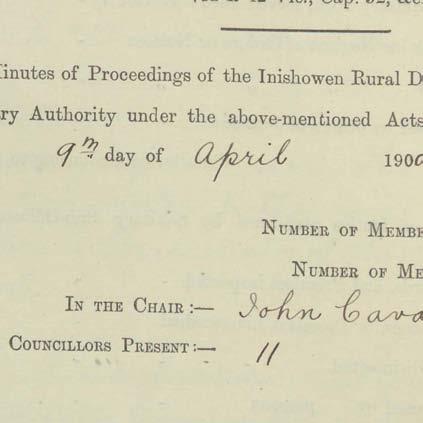 Minutes of Proceedings of the Inishowen Rural D
ry Authority under the above-mentioned Acts
9th day of April 190
Number of Membe
Number of Me
In the Chair :— John Cava
Councillors Present :— 11